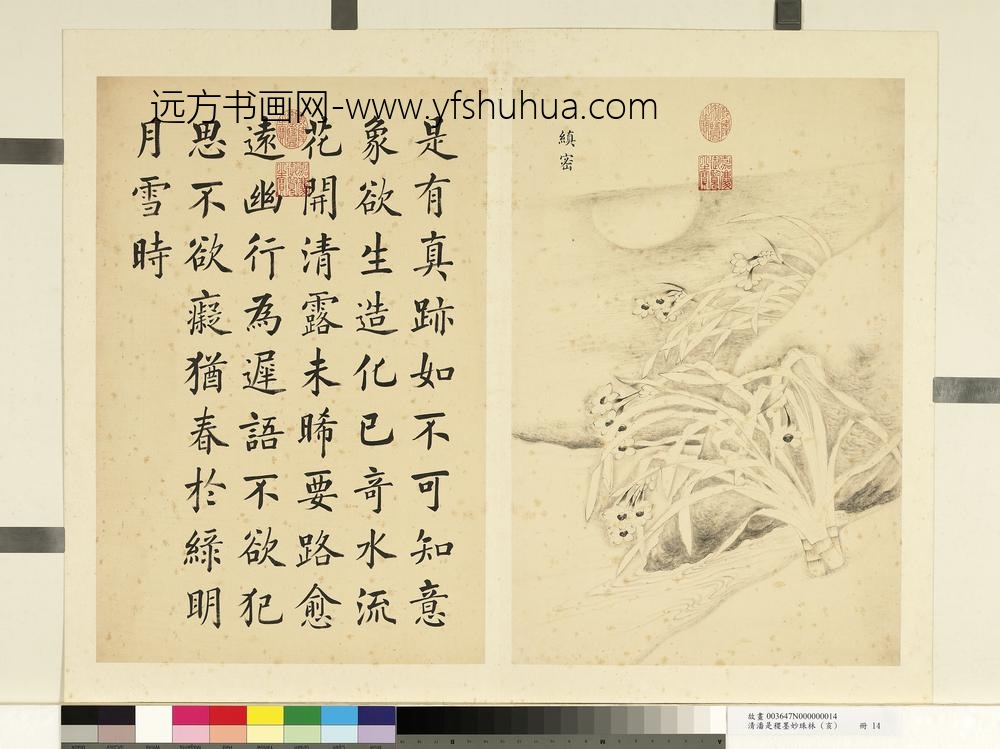 远方书画网-www.yfshuhua.com
縝密
是有真跡如不可知意
象欲生造化已奇水流
花開清露未晞要路愈
遠幽行為遲語不欲犯
思不欲癡猶春於綠明
月雪時
故畫 003647N000000014
清潘是稷墨妙珠林(亥) 冊 14